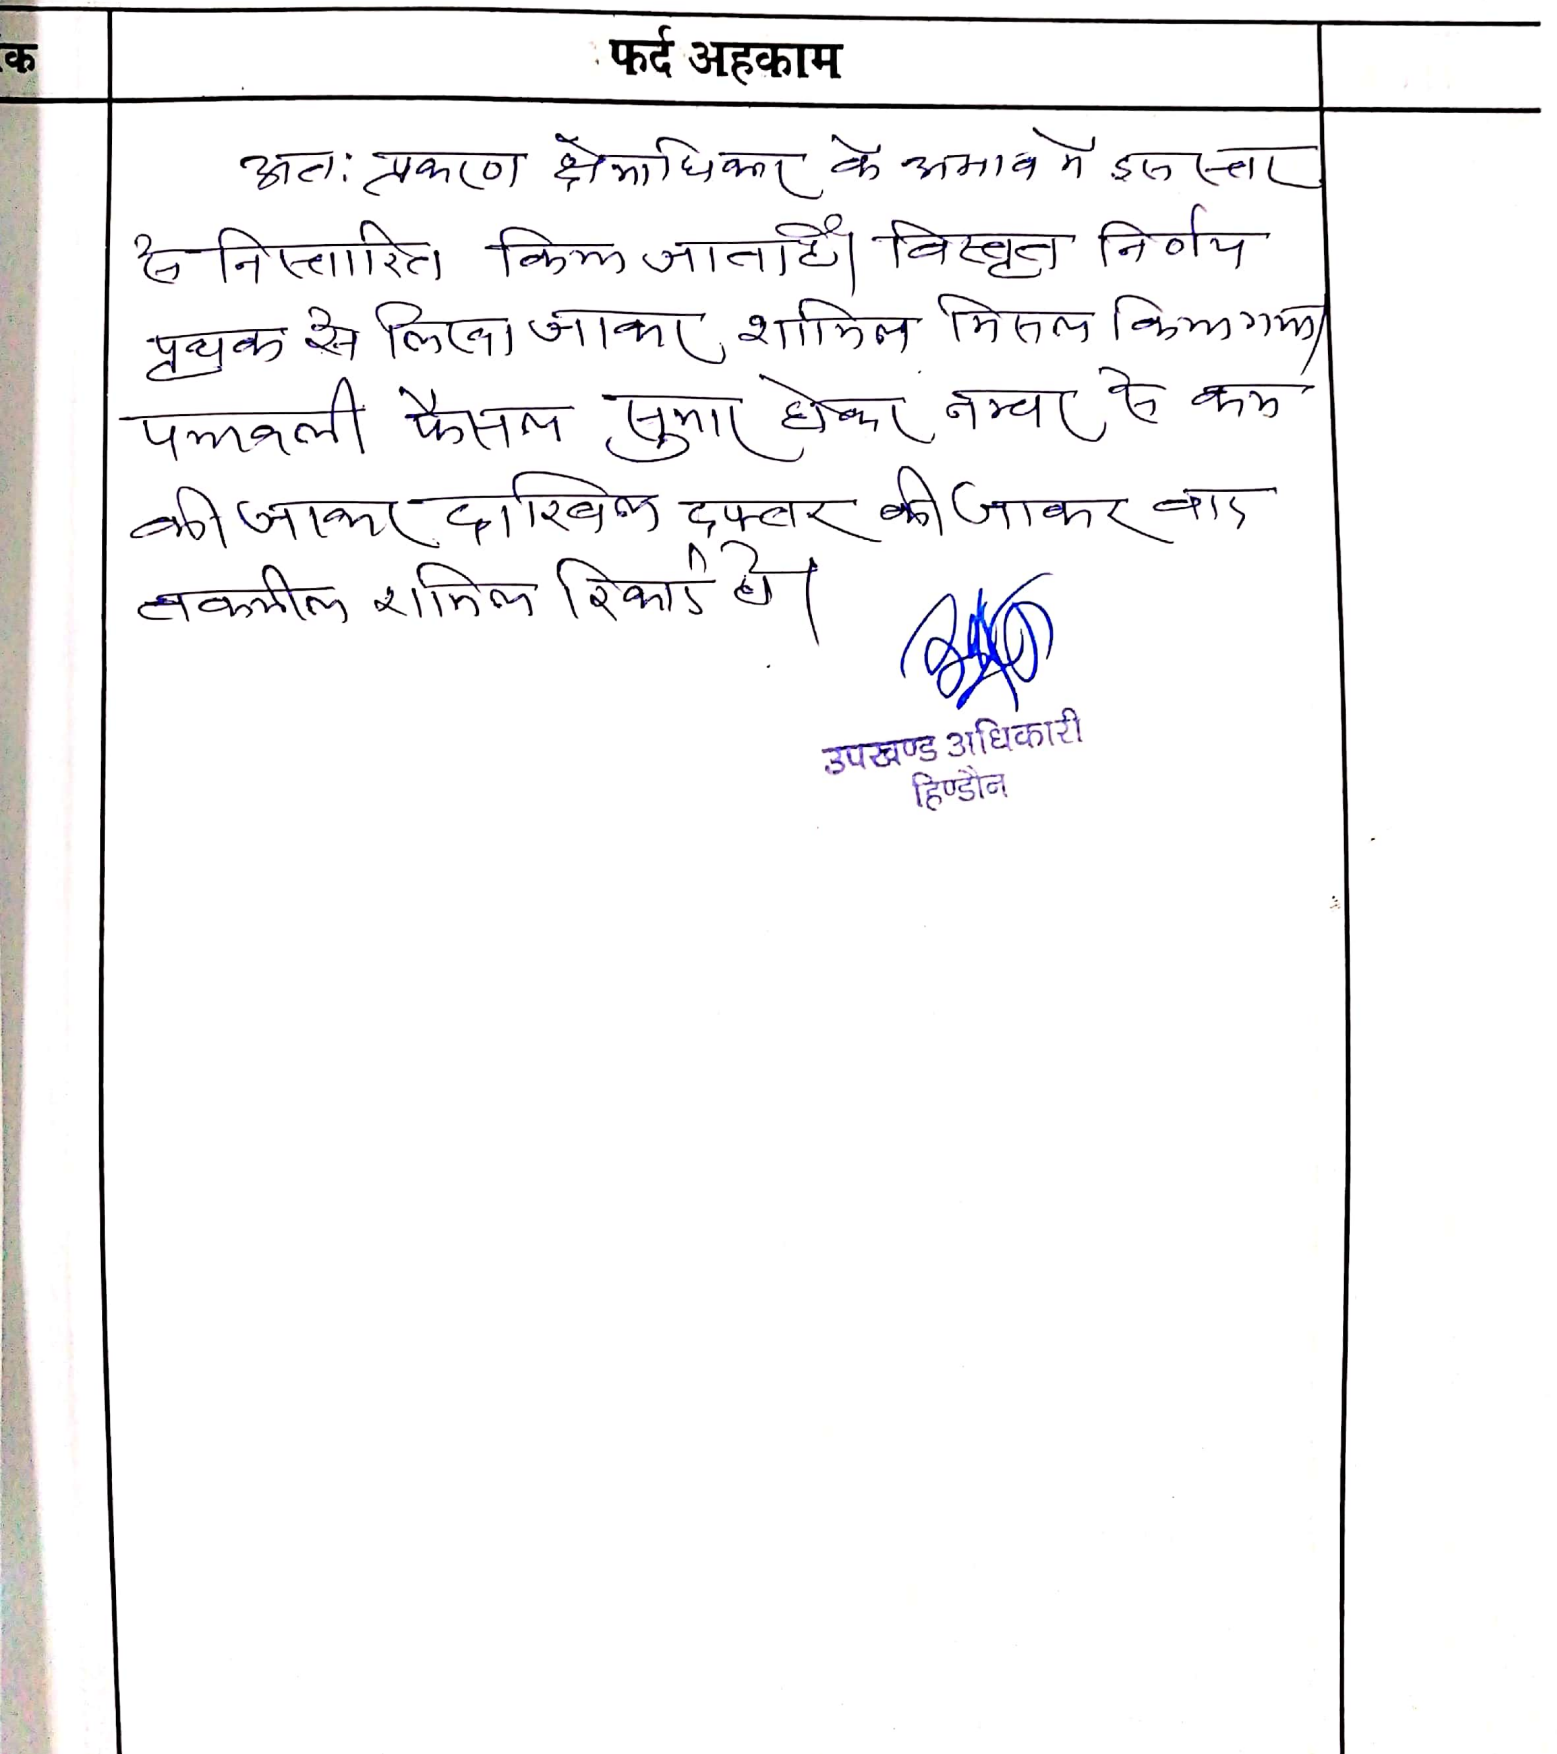 क
फर्द अहकाम
अतः प्रकरण क्षेत्राधिकार के अभाव में इस स्तर
से निस्तारित किया जाता है। विस्तृत निर्णय
पृथक से लिखा जाकर शामिल मिसल किया गया।
पत्रावली फैसल सुमार होकर नम्बर से कम
की जाकर दाखिल दफ्तर की जाकर बाद
तकमील शामिल रिकार्ड हो।
उपखण्ड अधिकारी
हिण्डौन